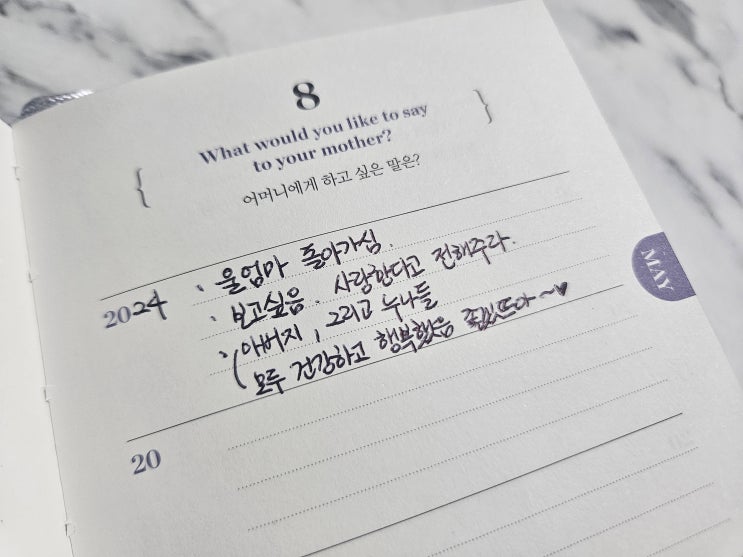 8
What would you like to say
to your mother?
어머니에게 하고 싶은 말은?
2024
· 울엄마 돌아가심.
· 보고싶음. 사랑한다고 전해주라.
· (아버지, 그리고 누나들
모두 건강하고 행복했음 좋겠뜨아~♥
MAY
20